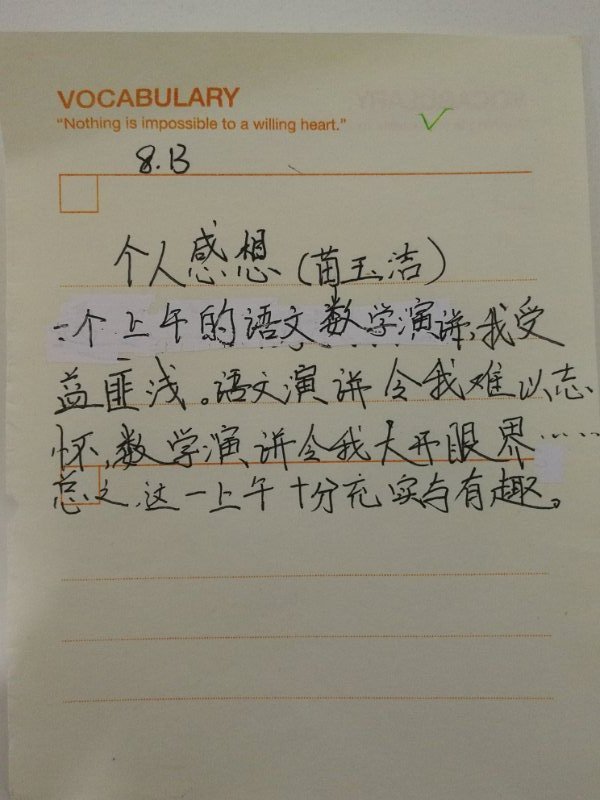 VOCABULARY
"Nothing is impossible to a willing heart."
8.13
个人感想(苗玉洁)
一个上午的语文数学演讲,我受
益匪浅。语文演讲令我难以忘
怀,数学演讲令我大开眼界……
总之,这一上午十分充实与有趣。